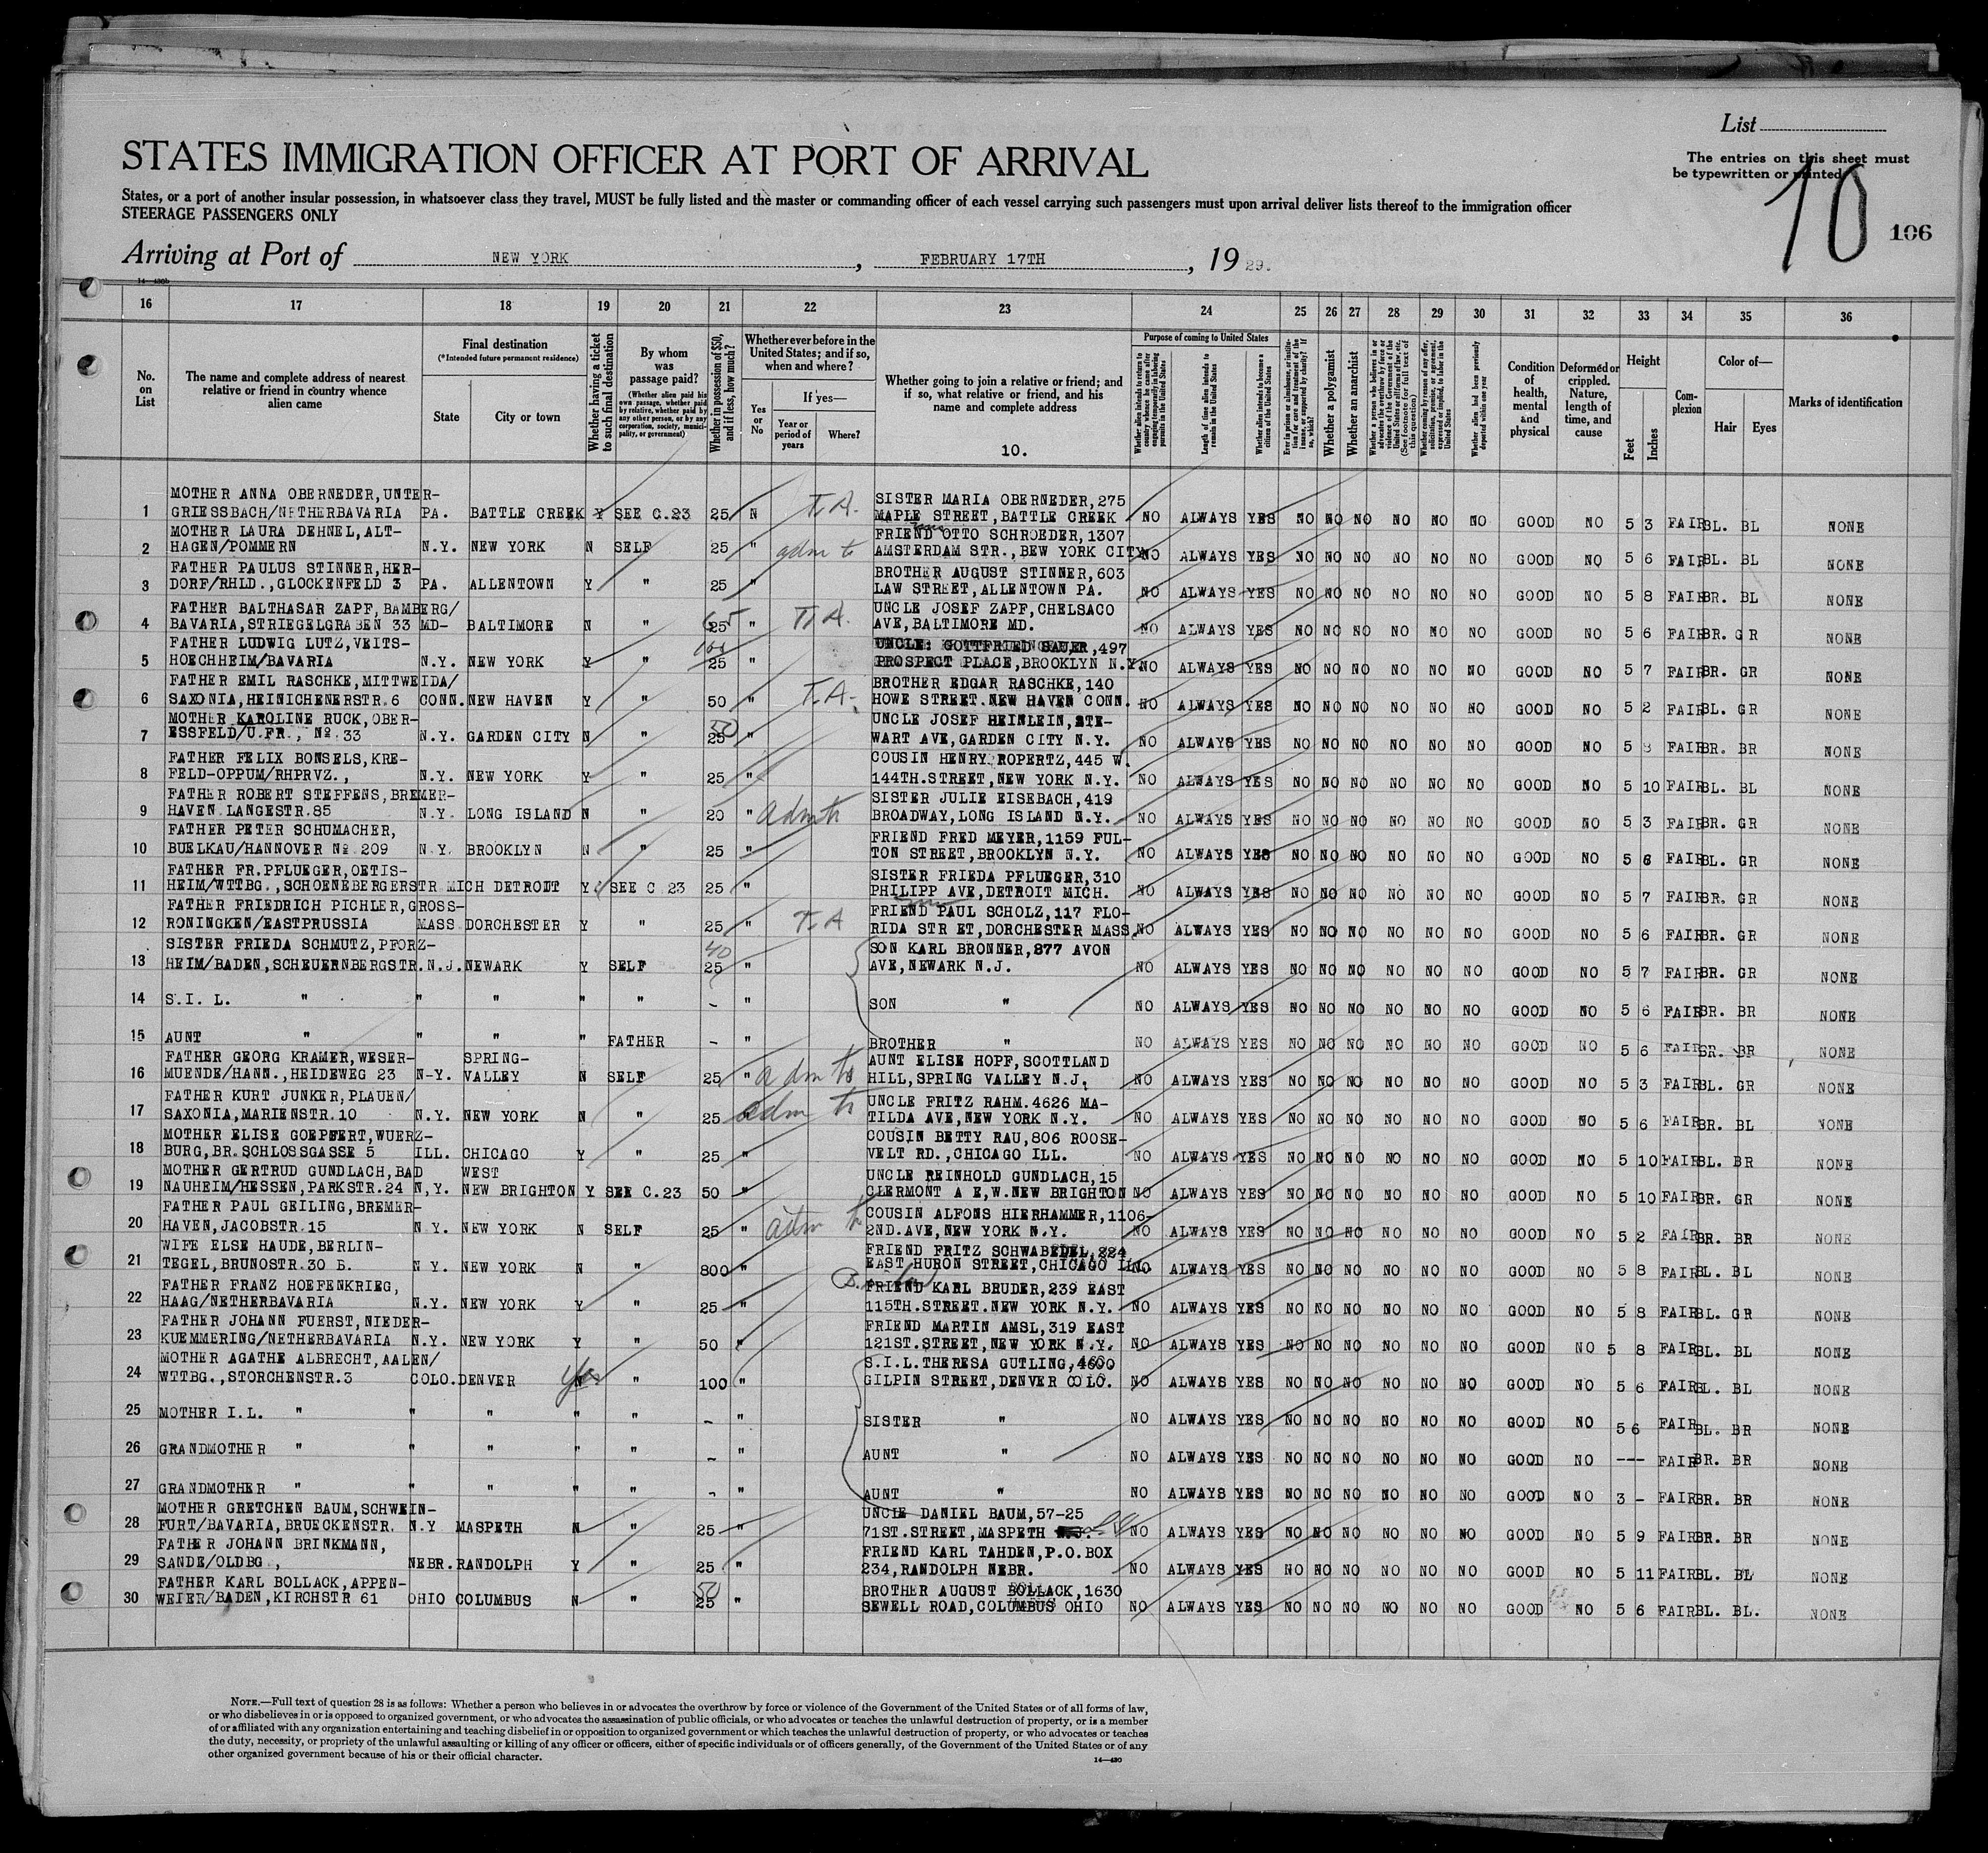 List
The entries on this sheet must
be typewritten or printed
10
106
STATES IMMIGRATION OFFICER AT PORT OF ARRIVAL
States, or a port of another insular possession, in whatsoever class they travel, MUST be fully listed and the master or commanding officer of each vessel carrying such passengers must upon arrival deliver lists thereof to the immigration officer
STEERAGE PASSENGERS ONLY
Arriving at Port of NEW YORK, FEBRUARY 17TH, 1929.
14—430b
16 17 18 19 20 21 22 23 24 25 26 27 28 29 30 31 32 33 34 35 36
No. on List
The name and complete address of nearest relative or friend in country whence alien came
Final destination
(*Intended future permanent residence)
State
City or town
Whether having a ticket to such final destination
By whom was passage paid?
(Whether alien paid his own passage, whether paid by relative, whether paid by any other person, or by any corporation, society, municipality, or government)
Whether in possession of $50, and if less, how much?
Whether ever before in the United States; and if so, when and where?
Yes or No
If yes—
Year or period of years
Where?
Whether going to join a relative or friend; and if so, what relative or friend, and his name and complete address
10.
Purpose of coming to United States
Whether alien intends to return to country whence he came after engaging temporarily in laboring pursuits in the United States
Length of time alien intends to remain in the United States
Whether alien intends to become a citizen of the United States
Ever in prison or almshouse, or institution for care and treatment of the insane, or supported by charity? If so, which?
Whether a polygamist
Whether an anarchist
Whether a person who believes in or advocates the overthrow by force or violence of the Government of the United States or all forms of law, etc. (See footnote for full text of this question)
Whether coming by reason of any offer, solicitation, promise, or agreement, expressed or implied, to labor in the United States
Whether alien had been previously deported within one year
Condition of health, mental and physical
Deformed or crippled. Nature, length of time, and cause
Height
Feet
Inches
Complexion
Color of—
Hair
Eyes
Marks of identification
MOTHER ANNA OBERNEDER, UNTER- SISTER MARIA OBERNEDER, 275
1 GRIESSBACH/NETHERBAVARIA PA. BATTLE CREEK Y SEE C.23 25 N T.A. MAPLE STREET, BATTLE CREEK NO ALWAYS YES NO NO NO NO NO NO GOOD NO 5 3 FAIR BL. BL NONE
MOTHER LAURA DEHNEL, ALT- FRIEND OTTO SCHROEDER, 1307
2 HAGEN/POMMERN N.Y. NEW YORK N SELF 25 " adm to AMSTERDAM STR., BEW YORK CITY NO ALWAYS YES NO NO NO NO NO NO GOOD NO 5 6 FAIR BL. BL NONE
FATHER PAULUS STINNER, HER- BROTHER AUGUST STINNER, 603
3 DORF/RHLD., GLOCKENFELD 3 PA. ALLENTOWN Y " 25 " LAW STREET, ALLENTOWN PA. NO ALWAYS YES NO NO NO NO NO NO GOOD NO 5 8 FAIR BR. BL NONE
FATHER BALTHASAR ZAPF, BAMBERG/ UNCLE JOSEF ZAPF, CHELSACO
4 BAVARIA, STRIEGELGRABEN 33 MD- BALTIMORE N " 25 65 " T.A. AVE, BALTIMORE MD. NO ALWAYS YES NO NO NO NO NO NO GOOD NO 5 6 FAIR BR. GR NONE
FATHER LUDWIG LUTZ, VEITS- UNCLE: GOTTFRIED SAUER, 497
5 HOECHHEIM/BAVARIA N.Y. NEW YORK Y " 100 25 " PROSPECT PLACE, BROOKLYN N.Y. NO ALWAYS YES NO NO NO NO NO NO GOOD NO 5 7 FAIR BR. GR NONE
FATHER EMIL RASCHKE, MITTWEIDA/ BROTHER EDGAR RASCHKE, 140
6 SAXONIA, HEINICHENERSTR.6 CONN. NEW HAVEN Y " 50 " T.A. HOWE STREET. NEW HAVEN CONN. NO ALWAYS YES NO NO NO NO NO NO GOOD NO 5 2 FAIR BL. GR NONE
MOTHER KAROLINE RUCK, OBER- UNCLE JOSEF HEINLEIN, STE-
7 ESSFELD/U.FR., № 33 N.Y. GARDEN CITY N " 50 25 " WART AVE, GARDEN CITY N.Y. NO ALWAYS YES NO NO NO NO NO NO GOOD NO 5 8 FAIR BR. BR NONE
FATHER FELIX BONSELS, KRE- COUSIN HENRY ROPERTZ, 445 W.
8 FELD-OPPUM/RHPRVZ., N.Y. NEW YORK Y " 25 " 144TH.STREET, NEW YORK N.Y. NO ALWAYS YES NO NO NO NO NO NO GOOD NO 5 10 FAIR BL. BL NONE
FATHER ROBERT STEFFENS, BREMER- SISTER JULIE EISEBACH, 419
9 HAVEN LANGESTR.85 N.Y. LONG ISLAND N " 20 " adm to BROADWAY, LONG ISLAND N.Y. NO ALWAYS YES NO NO NO NO NO NO GOOD NO 5 3 FAIR BR. GR NONE
FATHER PETER SCHUMACHER, FRIEND FRED MEYER, 1159 FUL-
10 BUELKAU/HANNOVER № 209 N.Y. BROOKLYN N " 25 " TON STREET, BROOKLYN N.Y. NO ALWAYS YES NO NO NO NO NO NO GOOD NO 5 6 FAIR BL. GR NONE
FATHER FR.PFLUEGER, OETIS- SISTER FRIEDA PFLUEGER, 310
11 HEIM/WTTBG., SCHOENEBERGERSTR MICH DETROIT Y SEE C 23 25 " PHILIPP AVE, DETROIT MICH. NO ALWAYS YES NO NO NO NO NO NO GOOD NO 5 7 FAIR BR. GR NONE
FATHER FRIEDRICH PICHLER, GROSS- FRIEND PAUL SCHOLZ, 117 FLO-
12 RONINGKEN/EASTPRUSSIA MASS DORCHESTER Y " 25 " T-A RIDA STR ET, DORCHESTER MASS. NO ALWAYS YES NO NO NO NO NO NO GOOD NO 5 6 FAIR BR. GR NONE
SISTER FRIEDA SCHMUTZ, PFORZ- SON KARL BRONNER, 877 AVON
13 HEIM/BADEN, SCHEUERNBERGSTR. N.J. NEWARK Y SELF 40 25 " AVE, NEWARK N.J. NO ALWAYS YES NO NO NO NO NO NO GOOD NO 5 7 FAIR BR. GR NONE
14 S.I.L. " " " " " - " SON " NO ALWAYS YES NO NO NO NO NO NO GOOD NO 5 6 FAIR BR. BR NONE
15 AUNT " " " " FATHER - " BROTHER " NO ALWAYS YES NO NO NO NO NO NO GOOD NO 5 6 FAIR BR. BR NONE
FATHER GEORG KRAMER, WESER- SPRING- AUNT ELISE HOPF, SCOTTLAND
16 MUENDE/HANN., HEIDEWEG 23 N-Y. VALLEY N SELF 25 " adm to HILL, SPRING VALLEY N.J. NO ALWAYS YES NO NO NO NO NO NO GOOD NO 5 3 FAIR BL. GR NONE
FATHER KURT JUNKER, PLAUEN/ UNCLE FRITZ RAHM. 4626 MA-
17 SAXONIA, MARIENSTR.10 N.Y. NEW YORK N " 25 adm to TILDA AVE, NEW YORK N.Y. NO ALWAYS YES NO NO NO NO NO NO GOOD NO 5 6 FAIR BR. BL NONE
MOTHER ELISE GOEPFERT, WUERZ- COUSIN BETTY RAU, 806 ROOSE-
18 BURG, BR.SCHLOSSGASSE 5 ILL. CHICAGO Y " 25 " VELT RD., CHICAGO ILL. NO ALWAYS YES NO NO NO NO NO NO GOOD NO 5 10 FAIR BL. BR NONE
MOTHER GERTRUD GUNDLACH, BAD WEST UNCLE REINHOLD GUNDLACH, 15
19 NAUHEIM/HESSEN, PARKSTR.24 N,Y. NEW BRIGHTON Y SEE C.23 50 " CLERMONT A E, W.NEW BRIGHTON NO ALWAYS YES NO NO NO NO NO NO GOOD NO 5 10 FAIR BR. GR NONE
FATHER PAUL GEILING, BREMER- COUSIN ALFONS HIERHAMMER, 1106-
20 HAVEN, JACOBSTR.15 N.Y. NEW YORK N SELF 25 " adm to 2ND.AVE, NEW YORK N.Y. NO ALWAYS YES NO NO NO NO NO NO GOOD NO 5 2 FAIR BR. BR NONE
WIFE ELSE HAUDE, BERLIN- FRIEND FRITZ SCHWABEDEL, 224
21 TEGEL, BRUNOSTR.30 B. N.Y. NEW YORK N " 800 " EAST HURON STREET, CHICAGO ILL. NO ALWAYS YES NO NO NO NO NO NO GOOD NO 5 8 FAIR BL. BL NONE
FATHER FRANZ HOEFENKRIEG, FRIEND KARL BRUDER, 239 EAST
22 HAAG/NETHERBAVARIA N.Y. NEW YORK Y " 25 " 115TH.STREET. NEW YORK N.Y. NO ALWAYS YES NO NO NO NO NO NO GOOD NO 5 8 FAIR BL. GR NONE
FATHER JOHANN FUERST, NIEDER- FRIEND MARTIN AMSL, 319 EAST
23 KUEMMERING/NETHERBAVARIA N.Y. NEW YORK Y " 50 " 121ST.STREET, NEW YORK N.Y. NO ALWAYS YES NO NO NO NO NO NO GOOD NO 5 8 FAIR BL. BL NONE
MOTHER AGATHE ALBRECHT, AALEN/ S.I.L.THERESA GUTLING, 4600
24 WTTBG., STORCHENSTR.3 COLO. DENVER Yes " 100 " GILPIN STREET, DENVER COLO. NO ALWAYS YES NO NO NO NO NO NO GOOD NO 5 6 FAIR BL. BL NONE
25 MOTHER I.L. " " " " " - " SISTER " NO ALWAYS YES NO NO NO NO NO NO GOOD NO 5 6 FAIR BL. BR NONE
26 GRANDMOTHER " " " " " - " AUNT " NO ALWAYS YES NO NO NO NO NO NO GOOD NO --- FAIR BR. BR NONE
27 GRANDMOTHER " " " " " - " AUNT " NO ALWAYS YES NO NO NO NO NO NO GOOD NO 3 - FAIR BR. BR NONE
MOTHER GRETCHEN BAUM, SCHWEIN- UNCLE DANIEL BAUM, 57-25
28 FURT/BAVARIA, BRUECKENSTR. N.Y MASPETH N " 25 " 71ST.STREET, MASPETH NO ALWAYS YES NO NO NO NO NO NO GOOD NO 5 9 FAIR BR. BR NONE
FATHER JOHANN BRINKMANN, FRIEND KARL TAHDEN, P.O.BOX
29 SANDE/OLDBG., NEBR. RANDOLPH Y " 25 " 234, RANDOLPH NEBR. NO ALWAYS YES NO NO NO NO NO NO GOOD NO 5 11 FAIR BL. BL NONE
FATHER KARL BOLLACK, APPEN- BROTHER AUGUST BOLLACK, 1630
30 WEIER/BADEN, KIRCHSTR 61 OHIO COLUMBUS N " 50 25 " SEWELL ROAD, COLUMBUS OHIO NO ALWAYS YES NO NO NO NO NO NO GOOD NO 5 6 FAIR BL. BL. NONE
NOTE.—Full text of question 28 is as follows: Whether a person who believes in or advocates the overthrow by force or violence of the Government of the United States or of all forms of law,
or who disbelieves in or is opposed to organized government, or who advocates the assassination of public officials, or who advocates or teaches the unlawful destruction of property, or is a member
of or affiliated with any organization entertaining and teaching disbelief in or opposition to organized government or which teaches the unlawful destruction of property, or who advocates or teaches
the duty, necessity, or propriety of the unlawful assaulting or killing of any officer or officers, either of specific individuals or of officers generally, of the Government of the United States or of any
other organized government because of his or their official character.
14—430